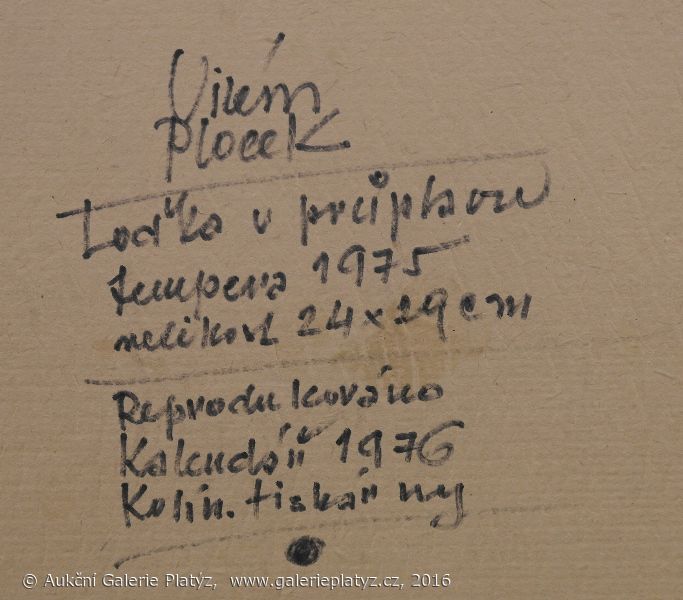 Vilém
Plocek
Loďka v průplavu
tempera 1975
velikost 24 x 29 cm
Reprodukováno
Kalendář 1976
Kolín. tiskárny
© Aukční Galerie Platýz, www.galerieplatyz.cz, 2016